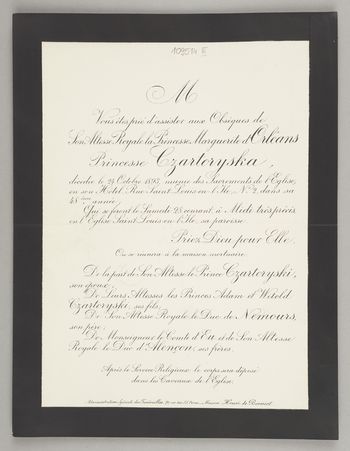 109514 III
M
Vous êtes prié d'assister aux Obsèques de
Son Altesse Royale la Princesse Marguerite d'Orléans
Princesse Czartoryska,
décédée le 24 Octobre 1893, munie des Sacrements de l'Eglise,
en son Hôtel Rue Saint Louis en l'Ile, N° 2, dans sa
48ème année;
Qui se feront le Samedi 28 courant, à Midi très précis
en l'Eglise Saint Louis en l'Ile, sa paroisse.
Priez Dieu pour Elle.
On se réunira à la maison mortuaire.
De la part de Son Altesse le Prince Czartoryski,
son époux;
De Leurs Altesses les Princes Adam et Witold
Czartoryski, ses fils;
De Son Altesse Royale le Duc de Nemours,
son père;
De Monseigneur le Comte d'Eu et de Son Altesse
Royale le Duc d'Alençon, ses frères.
Après le Service Religieux le corps sera déposé
dans les Caveaux de l'Eglise.
Administration Spéciale des Funérailles, Maison Henri de Borniol